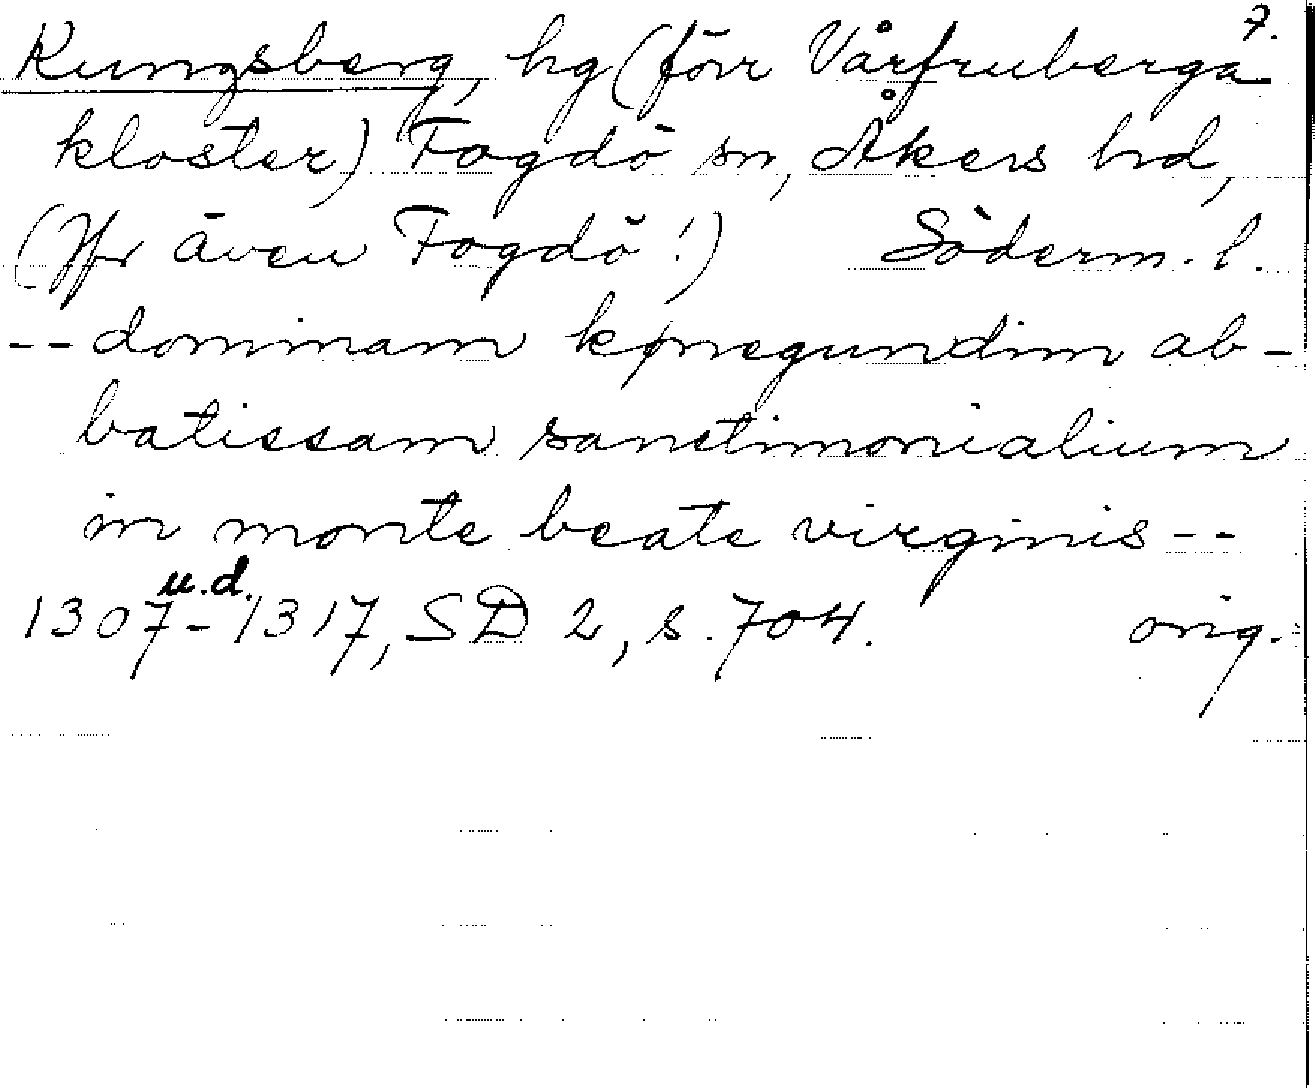 7.
Kungsberg, hg (förr Vårfruberga
kloster) Fogdö sn, Åkers hd,
(Jfr även Fogdö!) Söderm. l.
-- dominam kønegundim ab-
batissam sanctimonialium
in monte beate virginis --
u.d.
1307-1317, SD 2, s. 704. orig.